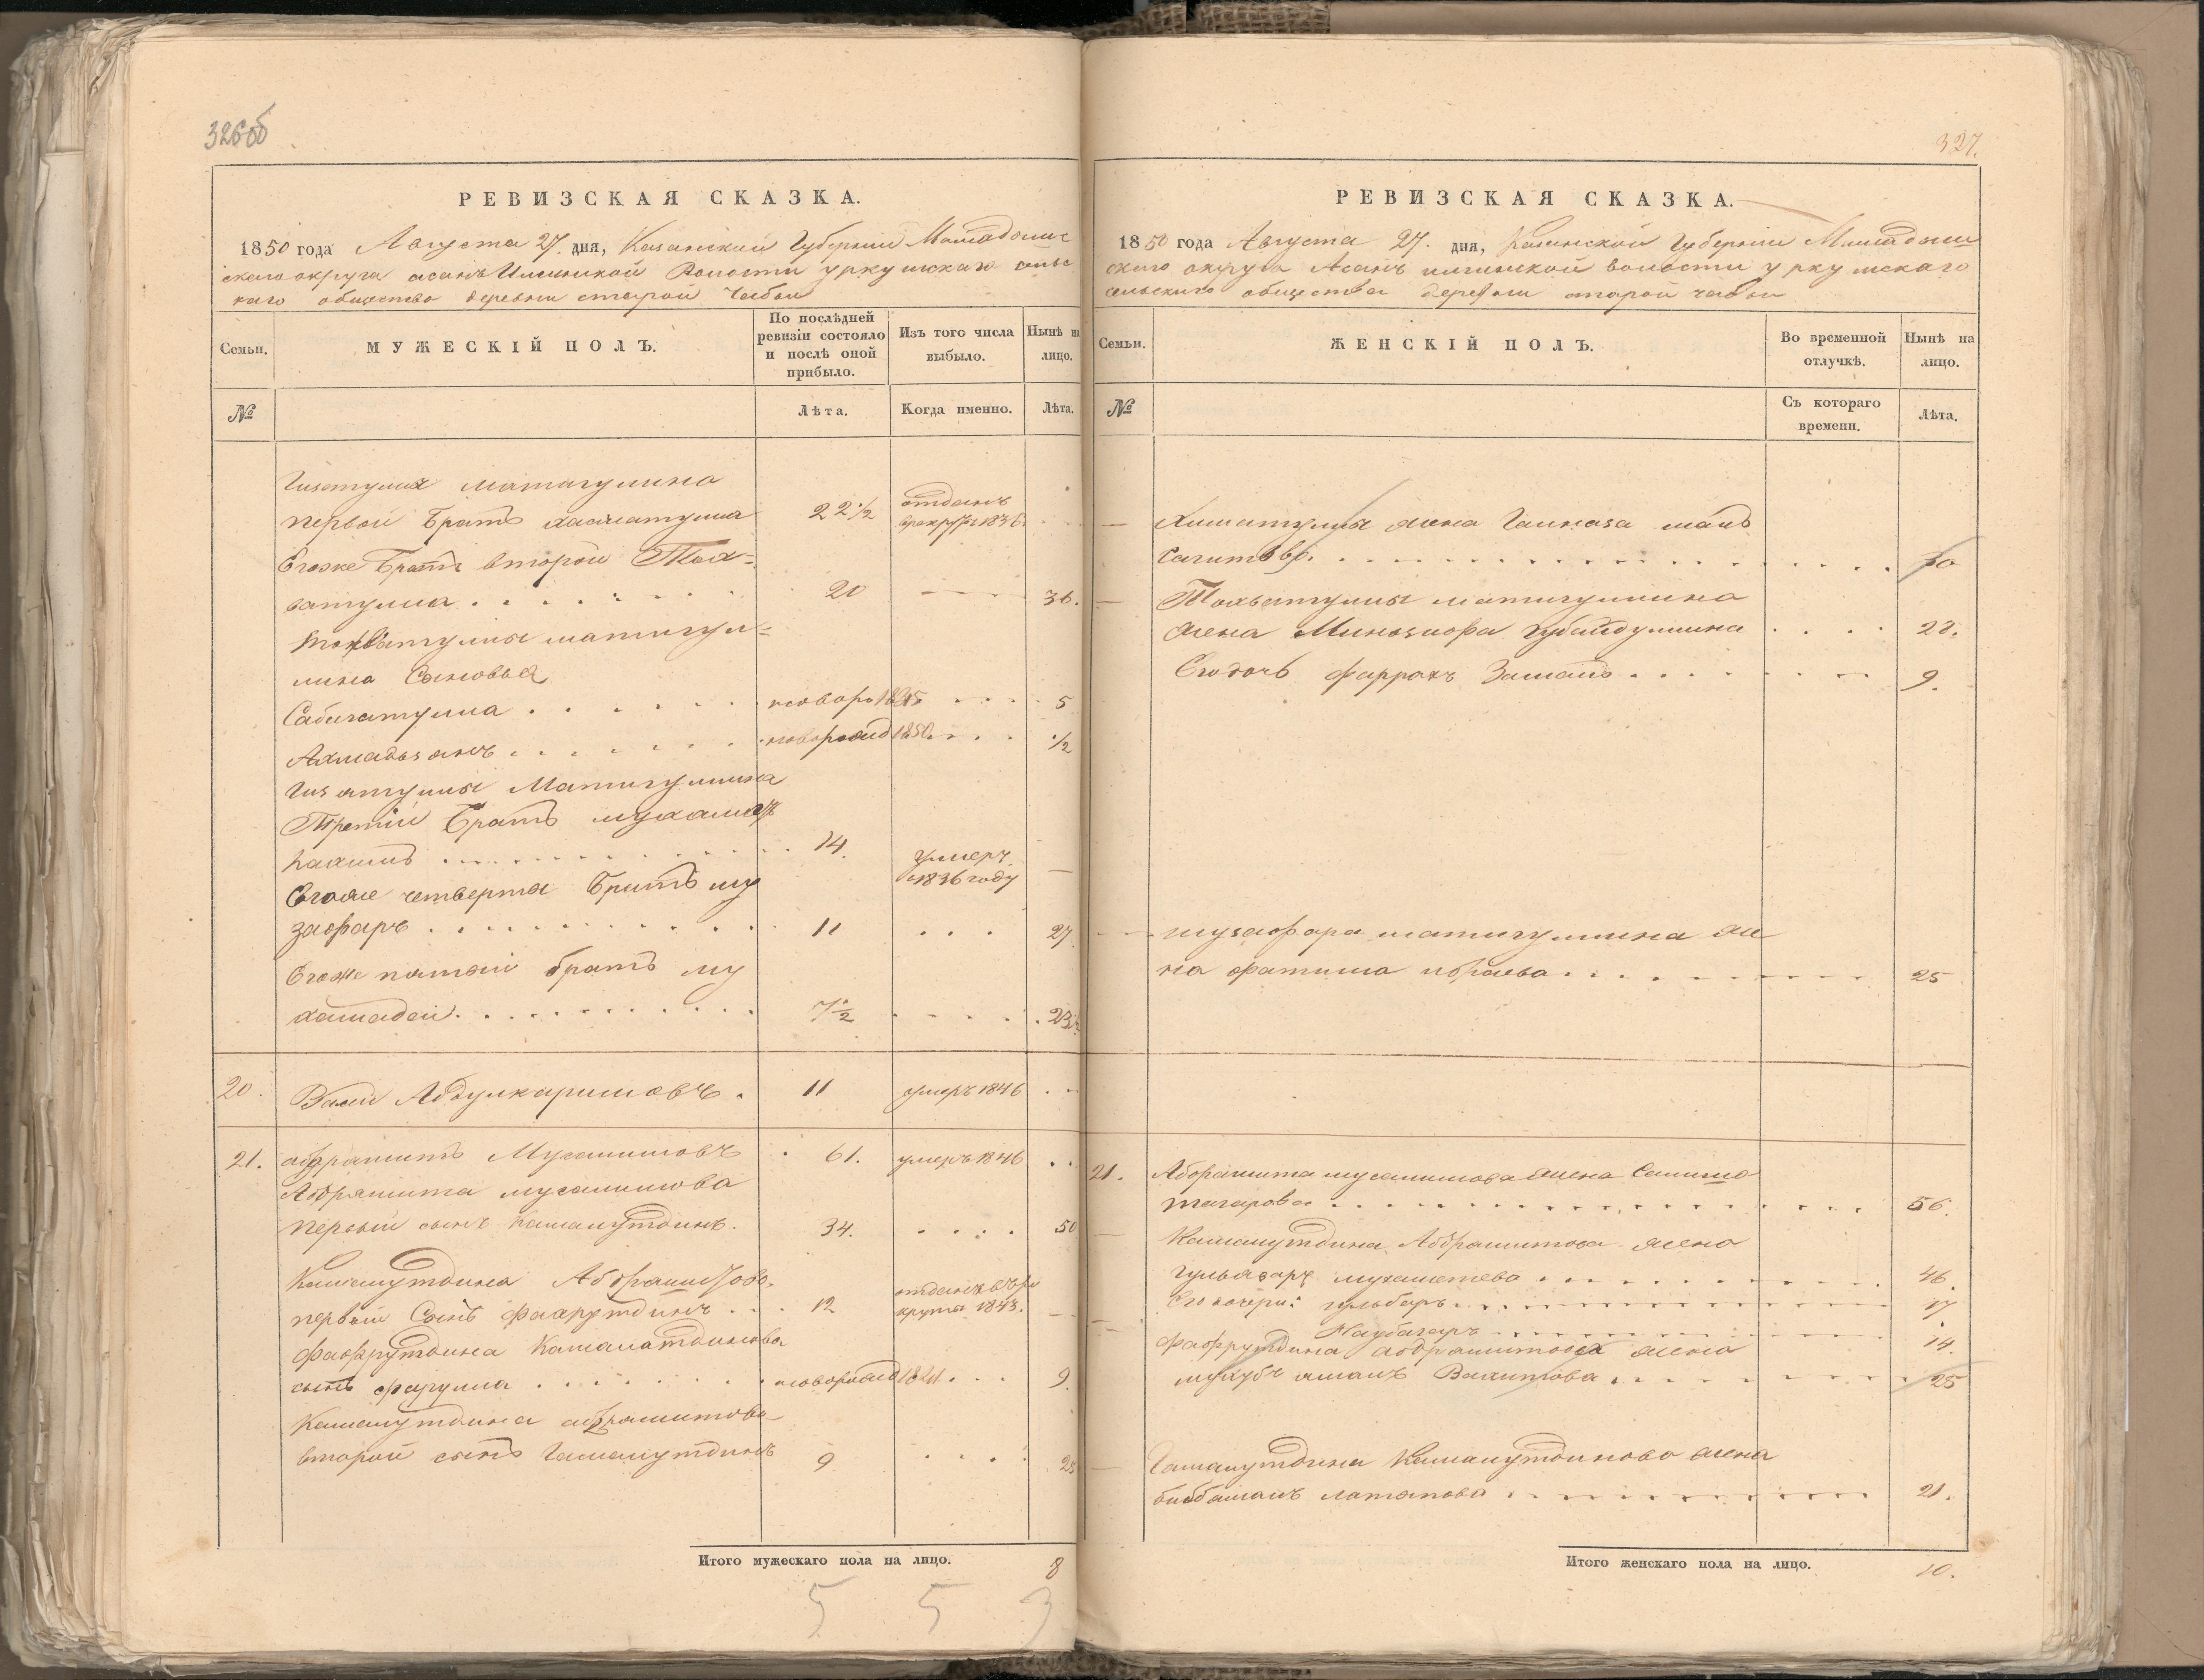 326об
РЕВИЗСКАЯ СКАЗКА.
1850 года Августа 27. дня, Казанской Губернии Мамадыш
скаго округа асанъ Илгинской Волости уркушскаго сельс
каго общества деревни старой Чабьи
Семьи.
МУЖЕСКІЙ ПОЛЪ.
По послѣдней ревизіи состояло и послѣ оной прибыло.
Изъ того числа выбыло.
Нынѣ на лицо.
№
Лѣта.
Когда именно.
Лѣта.
матигулина
первой братъ 22 1/2 отданъ в рекруты 1836
Егоже братъ второй Тох=
ватулла 20 36.
Тохватуллы матигул=
лина Сыновья
Сабигатулла новорож 1845 5
Ахмадьзянъ новорожд 1850 1/2
Матигуллина
Третій братъ мухамет
14. умеръ 1836 году
Егоже четверты братъ му
зафаръ 11 27
Егоже пятый братъ му
хамадей 7 1/2 23 1/2
20. Вали Абдулкаримовъ. 11 умеръ 1846
21. абдрашитъ Мусалимовъ 61. умеръ 1846
Абдрашита мусалимова
первый сынъ Камалутдинъ. 34. 50
Камалутдина Абдрашитова
первый Сынъ Фахрутдинъ 12 отданъ в рекруты 1843.
Фахрутдина Камалатдинова
сынъ новорожд 1841 9.
Камалутдина абдрашитова
второй сынъ Гамалутдинъ 9 25
Итого мужескаго пола на лицо. 8
5 5 3
327.
РЕВИЗСКАЯ СКАЗКА.
1850 года Августа 27. дня, Казанской Губерніи Мамадыш
скаго округа Асанъ илгинской волости уркушскаго
сельскаго общества деревни старой чабьи
Семьи.
ЖЕНСКІЙ ПОЛЪ.
Во временной отлучкѣ.
Нынѣ на лицо.
№
Съ котораго времени.
Лѣта.
жена
Сагитова. 30
Тохватуллы матигуллина
жена губайдуллина 28.
Егодочь Фаррахъ 9.
музафара матигуллина же
на фатима ибраева 25
21. Абдрашита мусалимова жена
тагарова 56.
Камалутдина Абдрашитова жена
гульбахаръ мухаметева 46.
Его дочери: гульбаръ 17
14.
Фахрутдина абдрашитова жена
Вахитова 25
Гамалутдина Камалутдинова жена
латыпова 21.
Итого женскаго пола на лицо. 10.